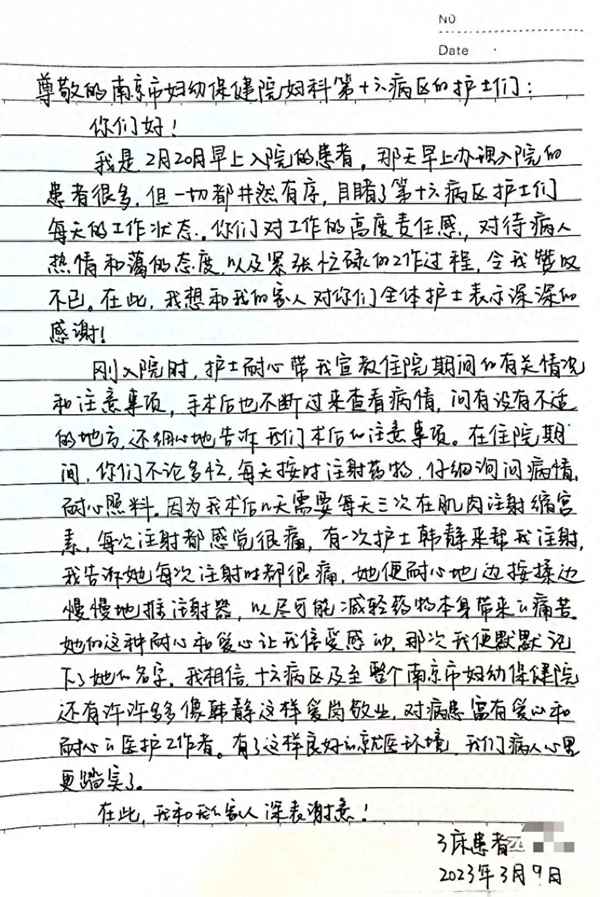 NO
Date
尊敬的南京市妇幼保健院妇科第十六病区的护士们:
你们好!
我是2月20日早上入院的患者,那天早上办理入院的
患者很多,但一切都井然有序,目睹了第十六病区护士们
每天的工作状态。你们对工作的高度责任感,对待病人
热情和蔼的态度,以及紧张忙碌的工作过程,令我赞叹
不已。在此,我想和我的家人对你们全体护士表示深深的
感谢!
刚入院时,护士耐心带我宣教住院期间的有关情况
和注意事项,手术后也不断过来查看病情,问有没有不适
的地方,还细心地告诉我们术后的注意事项。在住院期
间,你们不论多忙,每天按时注射药物,仔细询问病情,
耐心照料。因为我术后几天需要每天三次在肌肉注射缩宫
素,每次注射都感觉很痛,有一次护士韩静来帮我注射,
我告诉她每次注射时都很痛,她便耐心地边按揉边
慢慢地推注射器,以尽可能减轻药物本身带来的痛苦。
她的这种耐心和爱心让我倍受感动,那次我便默默记
下了她的名字。我相信,十六病区及至整个南京市妇幼保健院
还有许许多多像韩静这样爱岗敬业,对病患富有爱心和
耐心的医护工作者。有了这样良好的就医环境,我们病人心里
更踏实了。
在此,我和我的家人深表谢意!
3床患者
2023年3月9日